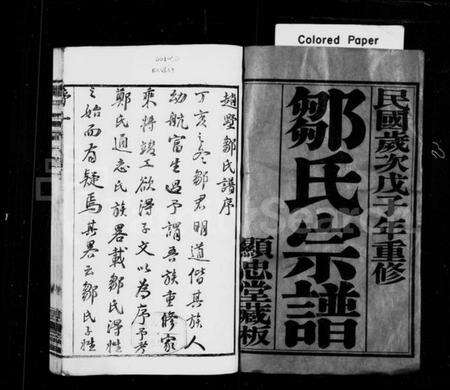 Colored Paper
民國歲次戊子年重修
鄒氏宗譜
顯忠堂藏板
趙墅鄒氏譜序
丁亥之冬鄒君明道偕其族人
幼航富生過予謂吾族重修家
乘將竣工欲得子文以為序予考
鄭氏通志氏族畧載鄒氏得姓
之始而有疑焉其畧云鄒氏子姓
序一